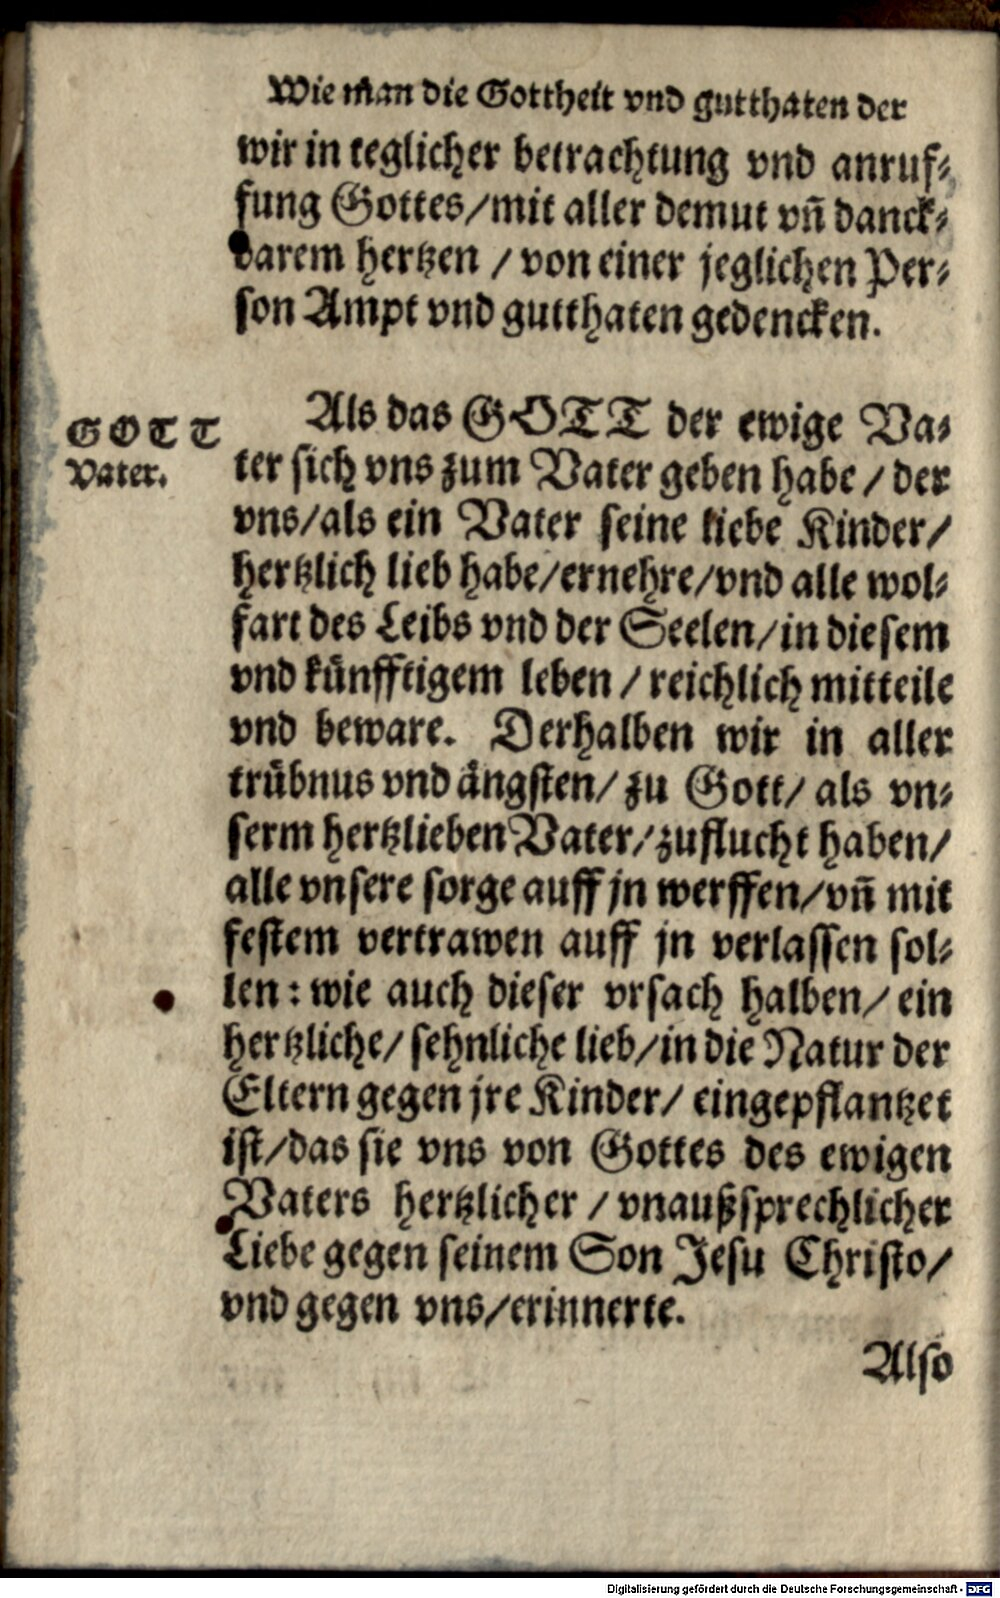 Wie man die Gottheit vnd gutthaten der
wir in teglicher betrachtung vnd anruf-
fung Gottes/mit aller demut vñ danck-
barem hertzen / von einer jeglichen Per-
son Ampt vnd gutthaten gedencken.
GOTT
Vater.
Als das GOTT der ewige Va-
ter sich vns zum Vater geben habe / der
vns/als ein Vater seine liebe Kinder/
hertzlich lieb habe/ernehre/vnd alle wol-
fart des Leibs vnd der Seelen/in diesem
vnd künfftigem leben / reichlich mitteile
vnd beware. Derhalben wir in aller
trübnus vnd ängsten/ zu Gott/ als vn-
serm hertzlieben Vater/zuflucht haben/
alle vnsere sorge auff jn werffen/vñ mit
festem vertrawen auff jn verlassen sol-
len: wie auch dieser vrsach halben/ ein
hertzliche/ sehnliche lieb/in die Natur der
Eltern gegen jre Kinder/ eingepflantzet
ist/das sie vns von Gottes des ewigen
Vaters hertzlicher / vnaußsprechlicher
Liebe gegen seinem Son Jesu Christo/
vnd gegen vns/erinnerte.
Also
Digitalisierung gefördert durch die Deutsche Forschungsgemeinschaft - DFG